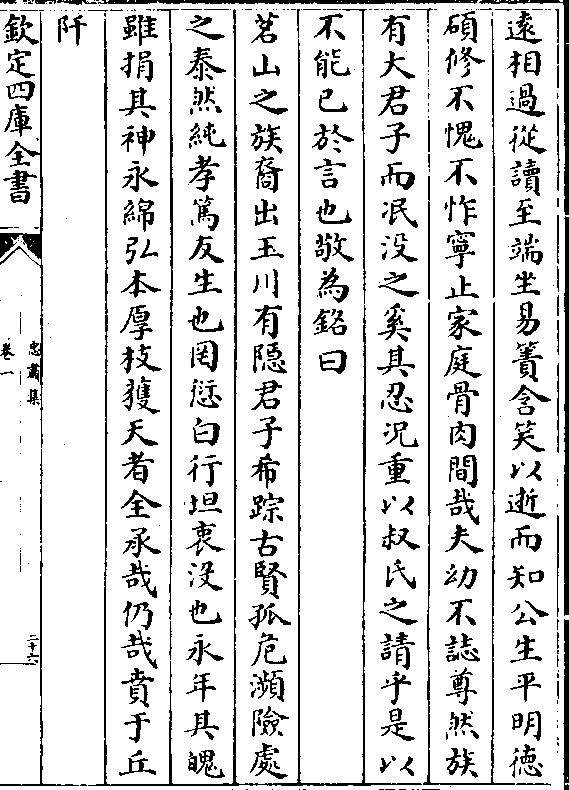 遠相過從讀至端坐易簀含笑以逝而知公生平明德
碩修不愧不怍寧止家庭骨肉間哉夫幼不誌尊然族
有大君子而泯没之奚其忍况重以叔氏之請乎是以
不能已於言也敬為銘曰
茗山之族裔出玉川有隠君子希踪古賢孤危瀕險處
之泰然純孝篤友生也罔愆白行坦衷没也永年其魄
雖捐其神永綿弘本厚枝獲天者全承哉仍哉賁于丘
阡
欽定四庫全書
忠肅集
卷一
二十六